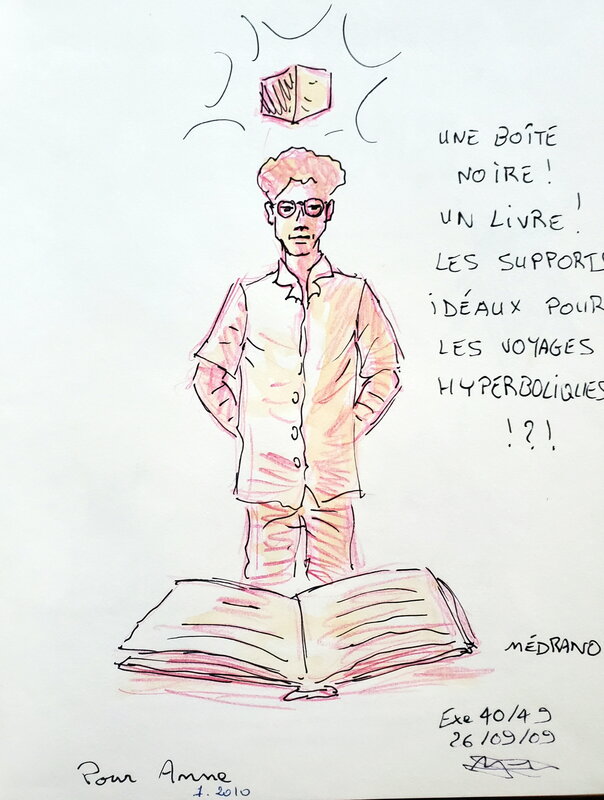 UNE BOÎTE
NOIRE !
UN LIVRE !
LES SUPPORTS
IDÉAUX POUR
LES VOYAGES
HYPERBOLIQUES
!?!
MÉDRANO
Exe 40/49
26/09/09
Pour Anne
1.2010